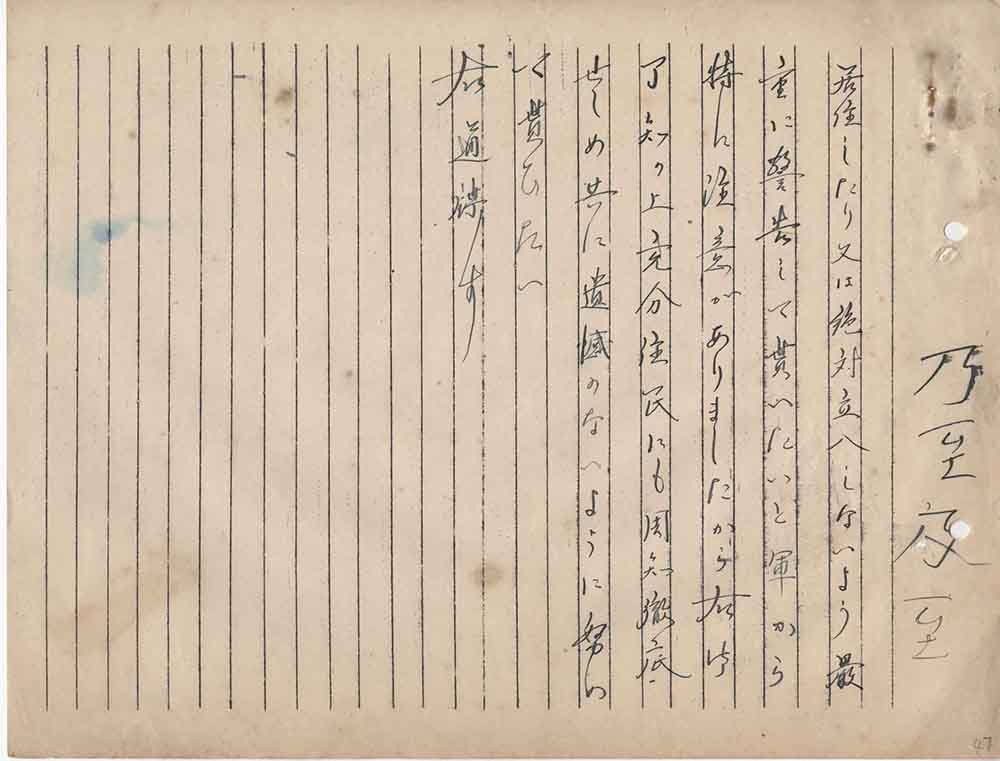 乃至夜至
居住したり又は絶対立入しないよう厳
重に警告して貰いたいと軍から
特に注意がありましたから右御
了知の上充分住民にも周知徹底
せしめ共に遺憾のないように努め
て貰ひたい
右通牒す
47